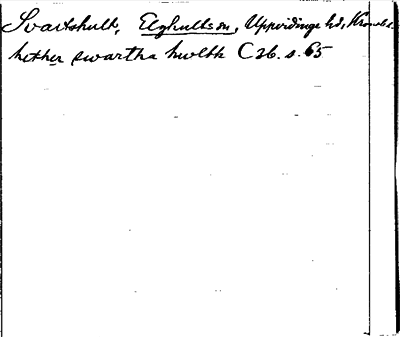 Svartshult, Elghults sn, Uppvidinge hd, Kronob.
hether swartha hwlth C26. s. 65